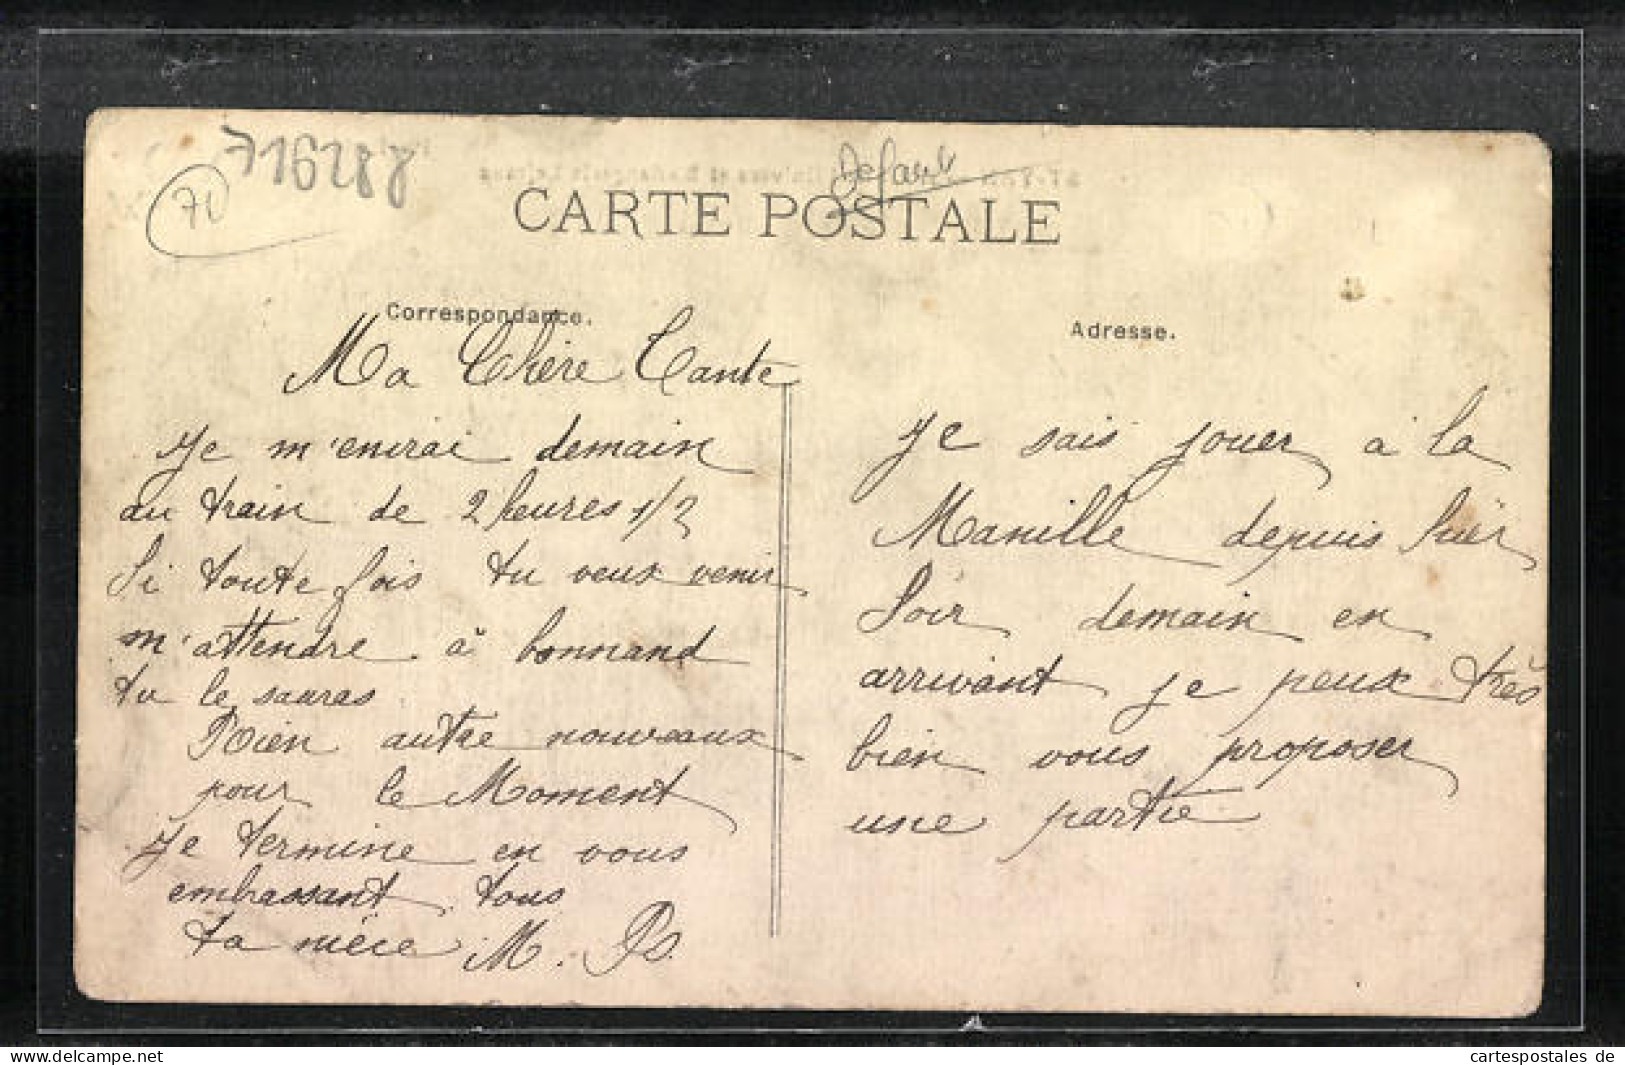 71
716288
Defaut
CARTE POSTALE
Correspondance.
Ma Chère Tante
Je m'enirai demain
au train de 2 heures 1/2
Si toute fois tu veux venir
m'attendre à bonnand
tu le saures
Rien autre nouveaux
pour le Moment
Je termine en vous
embrassant tous
ta nièce M. P
Adresse.
Je sais jouer à la
Manille depuis hier
Soir demain en
arrivant je peux très
bien vous proposer
une partie
www.cartespostales.eu
cartespostales de